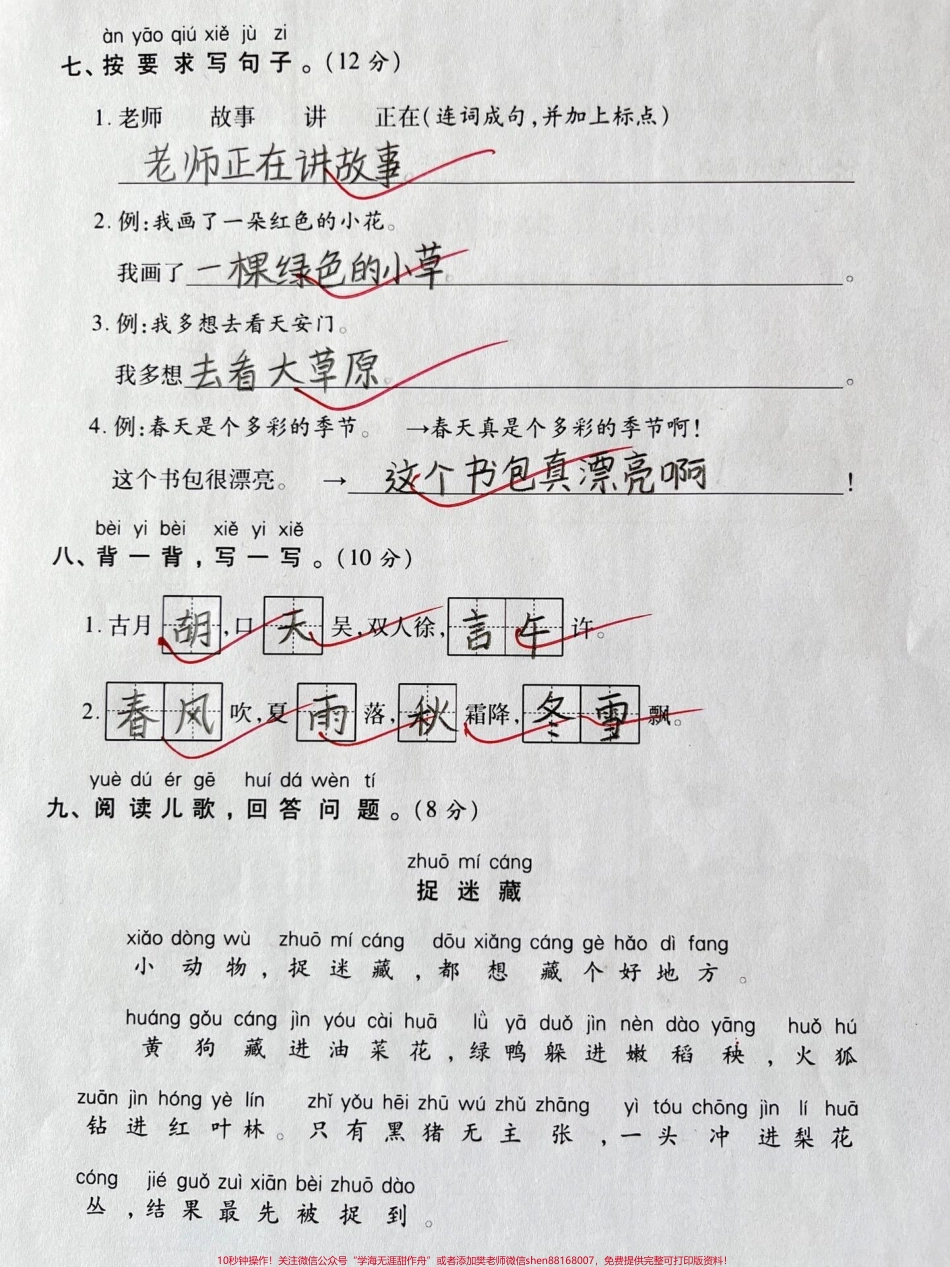 àn yāo qiú xiě jù zi
七、按要求写句子。(12分)
1. 老师 故事 讲 正在(连词成句,并加上标点)
老师正在讲故事。
2. 例:我画了一朵红色的小花。
我画了一棵绿色的小草。。
3. 例:我多想去看天安门。
我多想去看大草原。。
4. 例:春天是个多彩的季节。 →春天真是个多彩的季节啊!
这个书包很漂亮。 → 这个书包真漂亮啊!
bèi yi bèi xiě yi xiě
八、背一背,写一写。(10分)
1. 古月胡,口天吴,双人徐,言午许。
2. 春风吹,夏雨落,秋霜降,冬雪飘。
yuè dú ér gē huí dá wèn tí
九、阅读儿歌,回答问题。(8分)
zhuō mí cáng
捉迷藏
xiǎo dòng wù zhuō mí cáng dōu xiǎng cáng gè hǎo dì fang
小动物,捉迷藏,都想藏个好地方。
huáng gǒu cáng jìn yóu cài huā lǜ yā duǒ jìn nèn dào yāng huǒ hú
黄狗藏进油菜花,绿鸭躲进嫩稻秧,火狐
zuān jìn hóng yè lín zhǐ yǒu hēi zhū wú zhǔ zhāng yì tóu chōng jìn lí huā
钻进红叶林。只有黑猪无主张,一头冲进梨花
cóng jié guǒ zuì xiān bèi zhuō dào
丛,结果最先被捉到。
10秒钟操作!关注微信公众号“学海无涯甜作舟”或者添加樊老师微信shen88168007,免费提供完整可打印版资料!